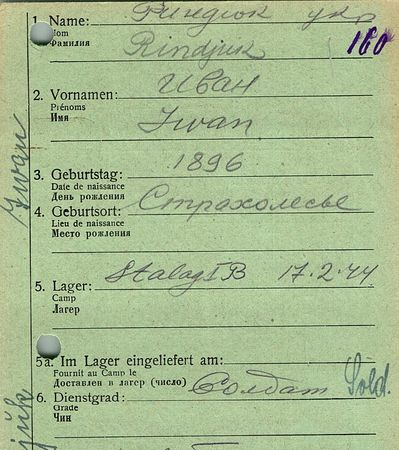 1. Name: Риндюк укр
Nom
Фамилия Rindjuk 160
Иван
2. Vornamen:
Prénoms
Имя Iwan
1896
3. Geburtstag:
Date de naissance
День рождения
4. Geburtsort: Страхолесье
Lieu de naissance
Место рождения
5. Lager: Stalag I B 17.2.44
Camp
Лагерь
5a. Im Lager eingeliefert am:
Fournit au Camp le
Доставлен в лагерь (число) Солдат Sold.
6. Dienstgrad:
Grade
Чин
Iwan